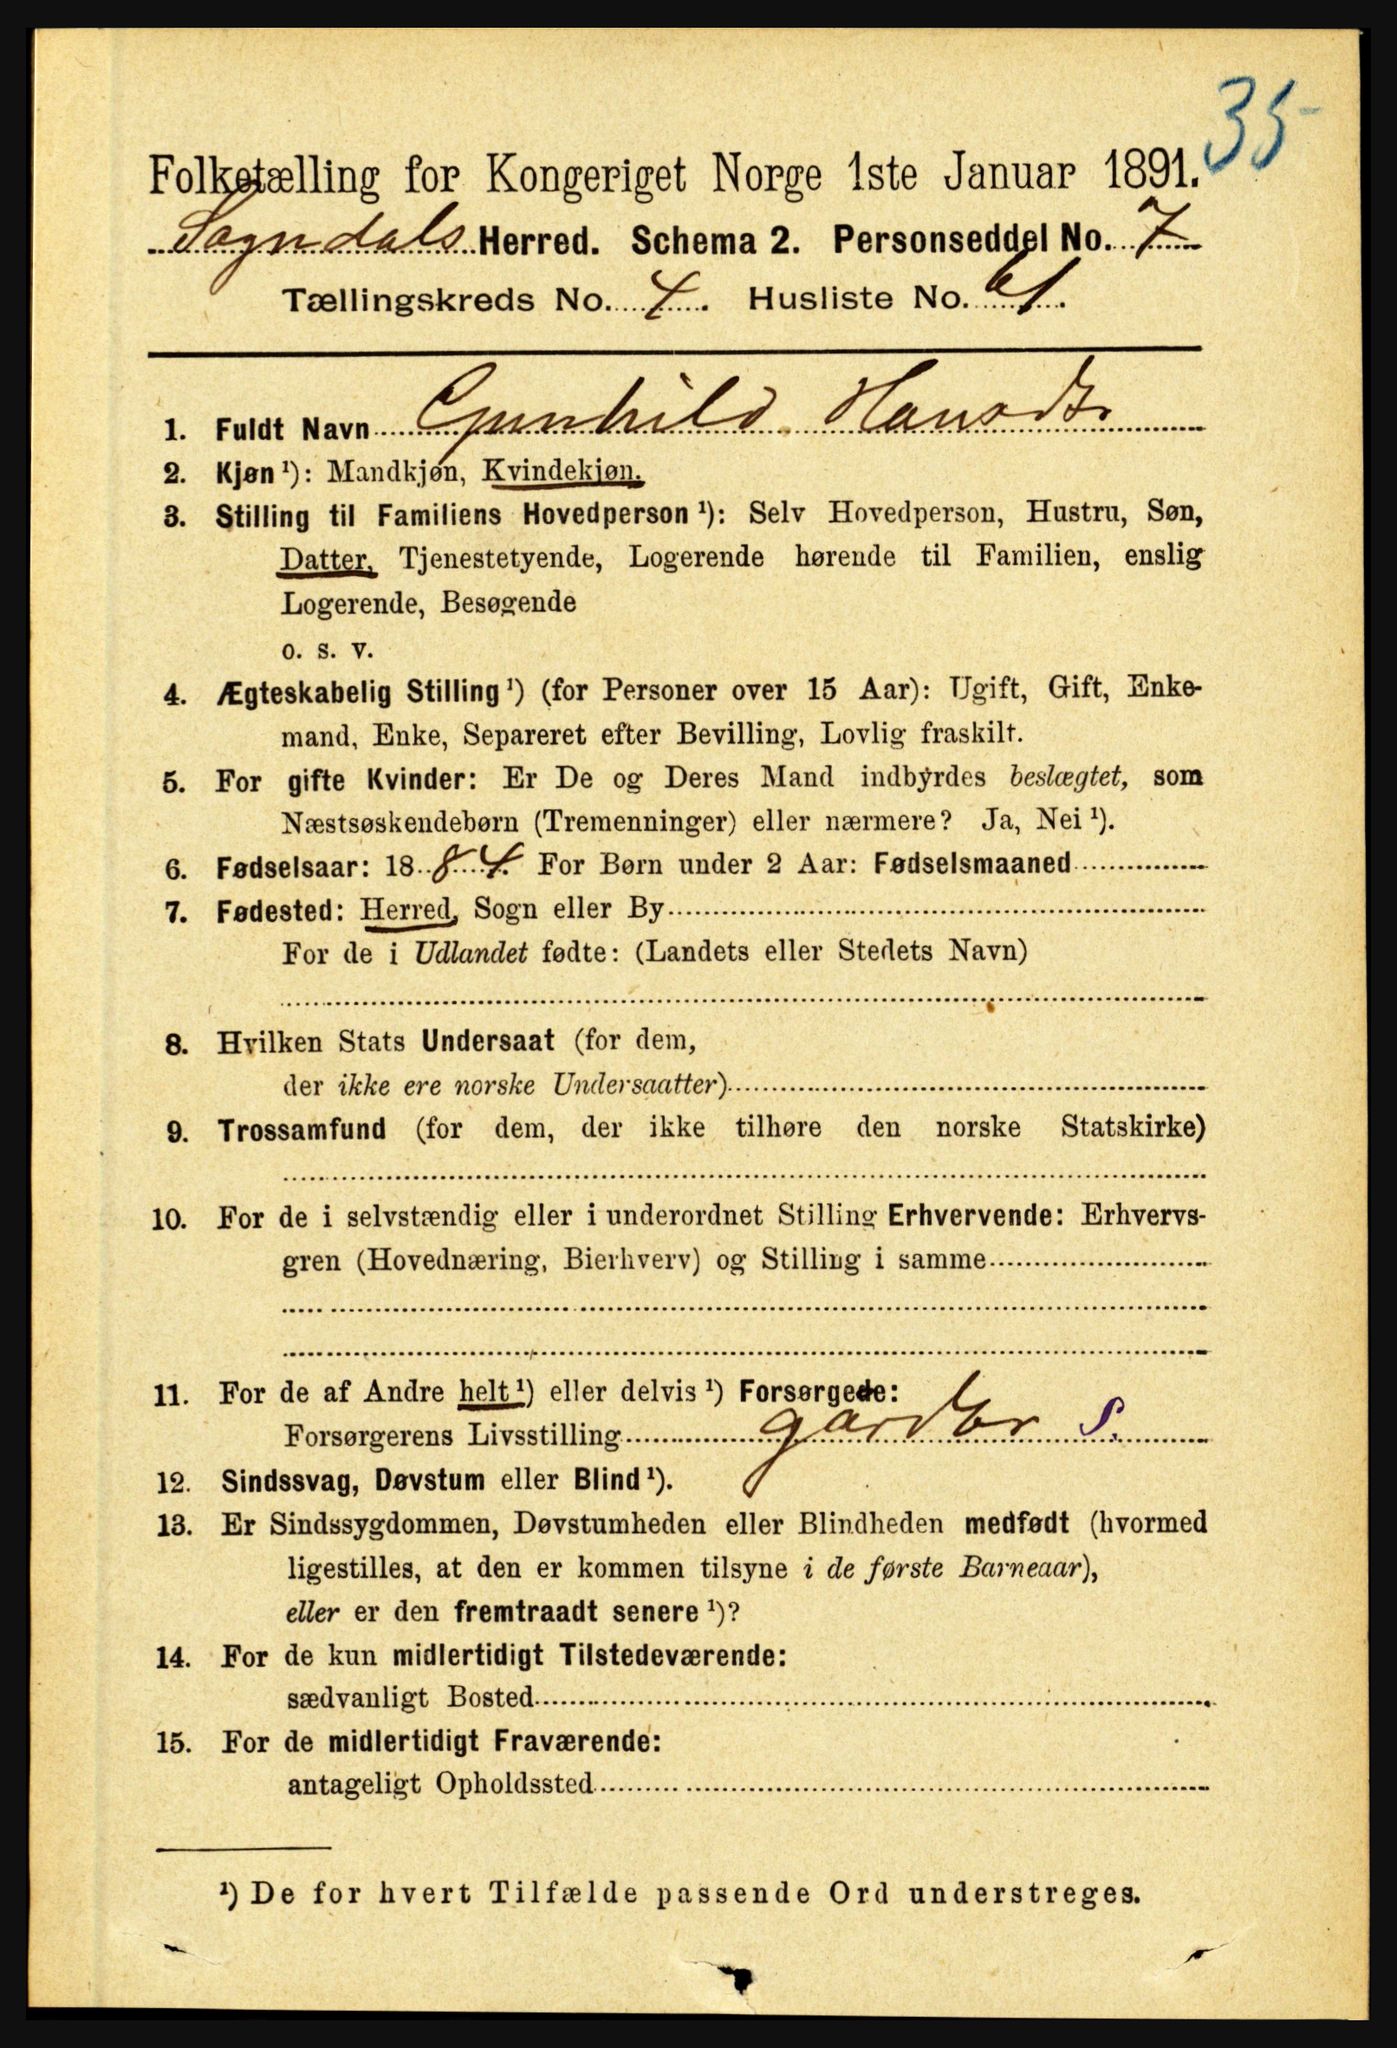 35
Folketælling for Kongeriget Norge 1ste Januar 1891.
Sogndals Herred. Schema 2. Personseddel No. 7
Tællingskreds No. 4. Husliste No. 61.
1. Fuldt Navn Gunhild Hansdtr
2. Kjøn ¹): Mandkjøn, Kvindekjøn.
3. Stilling til Familiens Hovedperson ¹): Selv Hovedperson, Hustru, Søn,
Datter, Tjenestetyende, Logerende hørende til Familien, enslig
Logerende, Besøgende
o. s. v.
4. Ægteskabelig Stilling ¹) (for Personer over 15 Aar): Ugift, Gift, Enke-
mand, Enke, Separeret efter Bevilling, Lovlig fraskilt.
5. For gifte Kvinder: Er De og Deres Mand indbyrdes beslægtet, som
Næstsøskendebørn (Tremenninger) eller nærmere? Ja, Nei ¹).
6. Fødselsaar: 1884. For Børn under 2 Aar: Fødselsmaaned
7. Fødested: Herred, Sogn eller By
For de i Udlandet fødte: (Landets eller Stedets Navn)
8. Hvilken Stats Undersaat (for dem,
der ikke ere norske Undersaatter)
9. Trossamfund (for dem, der ikke tilhøre den norske Statskirke)
10. For de i selvstændig eller i underordnet Stilling Erhvervende: Erhvervs-
gren (Hovednæring, Bierhverv) og Stilling i samme
11. For de af Andre helt ¹) eller delvis ¹) Forsørgede:
Forsørgerens Livsstilling gardbr S.
12. Sindssvag, Døvstum eller Blind ¹).
13. Er Sindssygdommen, Døvstumheden eller Blindheden medfødt (hvormed
ligestilles, at den er kommen tilsyne i de første Barneaar),
eller er den fremtraadt senere ¹)?
14. For de kun midlertidigt Tilstedeværende:
sædvanligt Bosted
15. For de midlertidigt Fraværende:
antageligt Opholdssted
¹) De for hvert Tilfælde passende Ord understreges.